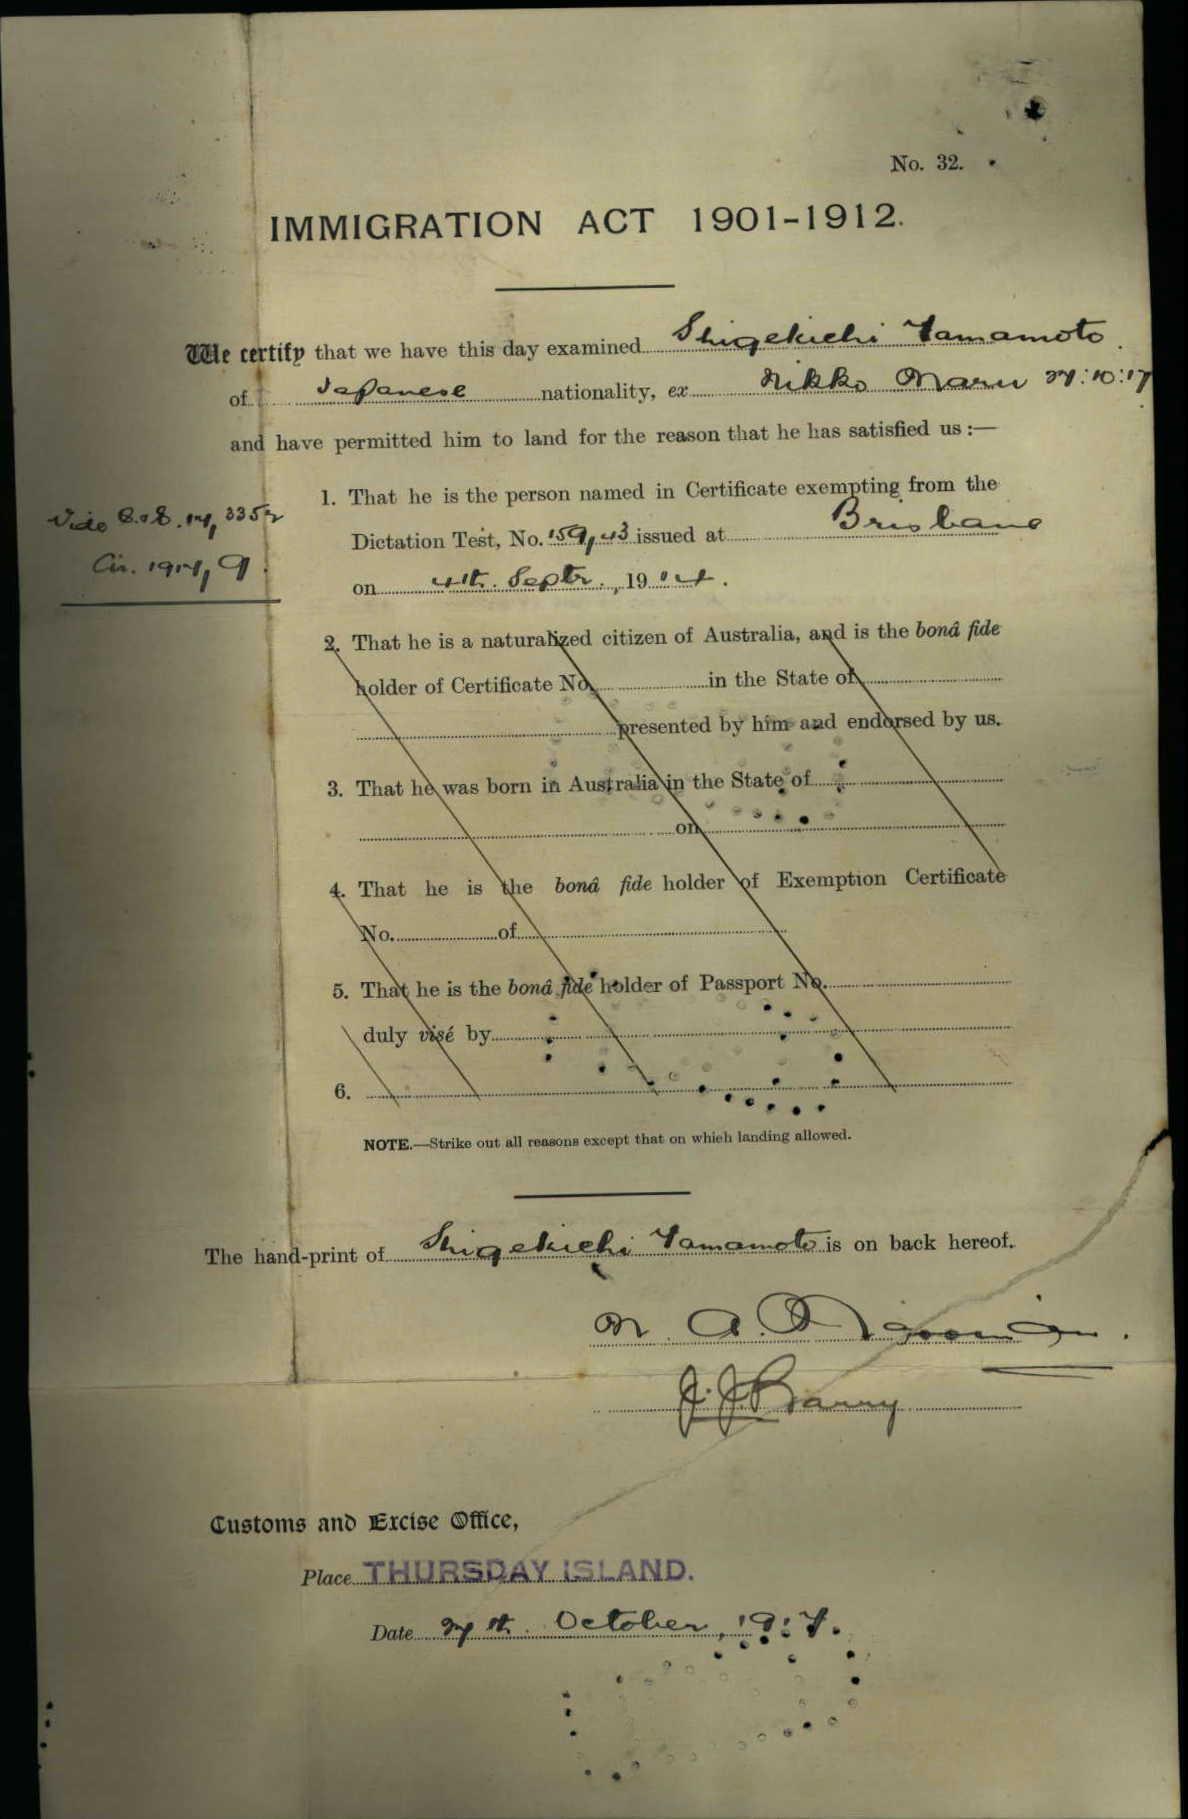 No. 32.
IMMIGRATION ACT 1901-1912.
We certify that we have this day examined Shigekichi Yamamoto.
of Japanese nationality, ex Nikko Maru 27:10:17
and have permitted him to land for the reason that he has satisfied us :—
1. That he is the person named in Certificate exempting from the
Vide C. & E. 14, 3352
Dictation Test, No. 159/43 issued at Brisbane
Cir. 1914, 9.
on 4th. Septr., 1914.
2. That he is a naturalized citizen of Australia, and is the bonâ fide
holder of Certificate No. in the State of
presented by him and endorsed by us.
3. That he was born in Australia in the State of
on
4. That he is the bonâ fide holder of Exemption Certificate
No. of
5. That he is the bonâ fide holder of Passport No.
duly visé by
6.
NOTE.—Strike out all reasons except that on which landing allowed.
The hand-print of Shigekichi Yamamoto is on back hereof.
J. J. Barry
Customs and Excise Office,
Place THURSDAY ISLAND.
Date 27th. October, 1917.